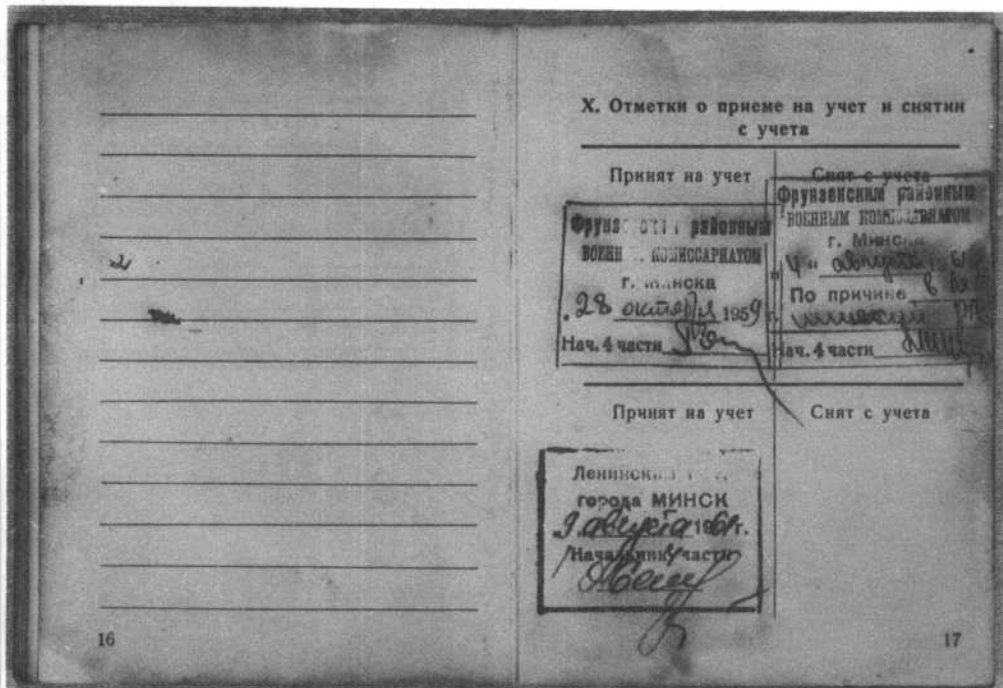 X. Отметки о приеме на учет и снятии
с учета
Принят на учет
районным
военн комиссариатом
г. Минска
28 октября 1959 г.
Нач. 4 части
Снят с учета
Фрунзенским районным
военным комиссариатом
г. Минска
"4" августа
По причине в
Нач. 4 части
Принят на учет
Ленинским
города МИНСК
9 августа 1961г.
Начальник 4 части
Снят с учета
16
17